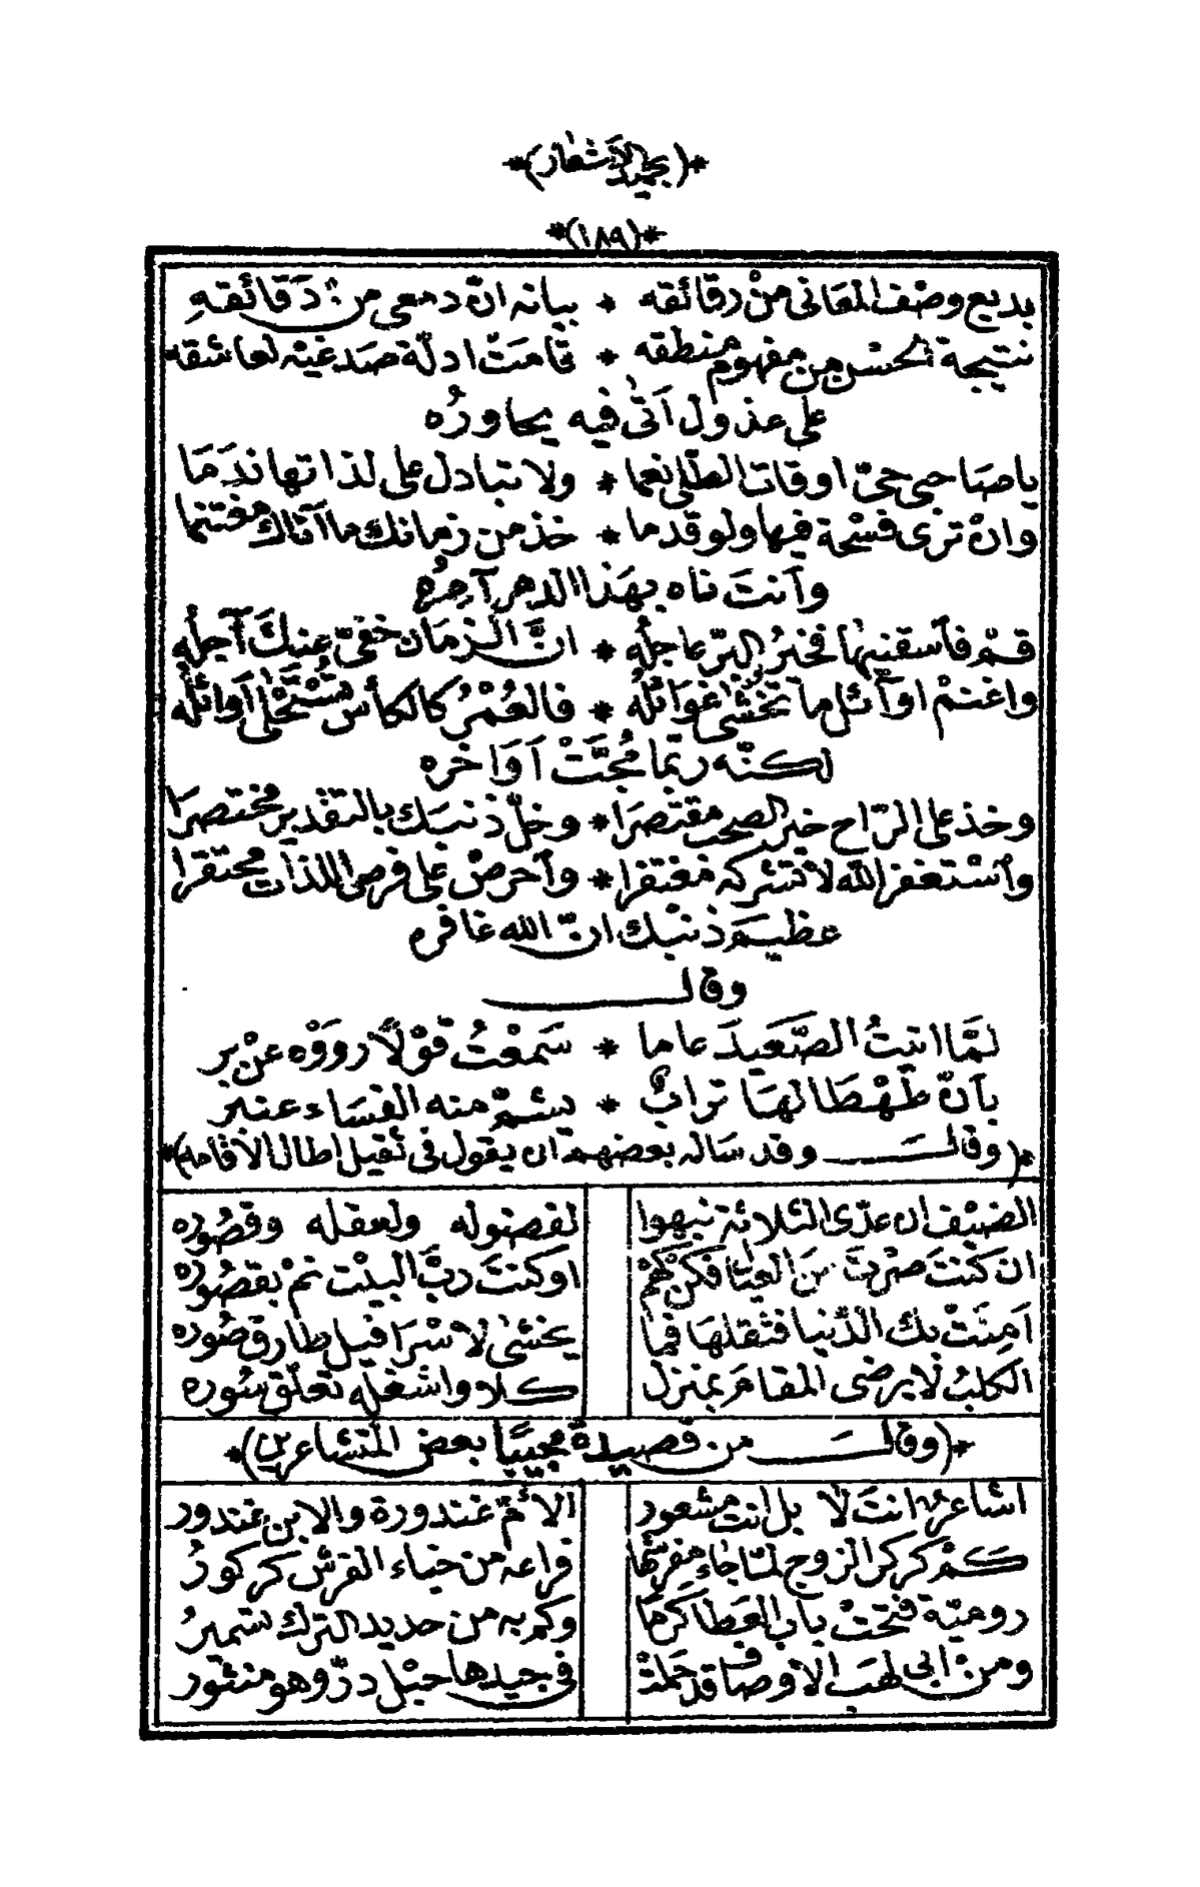 *(بحميد الأشعار)*
*(١٨٩)*
بديع وصف المعانى منْ رقائقه * ببيانه انّ دمعى من دَقائقهِ
نتيجة الحسْن من مفهوم منطقه * قامَتْ ادلّة صَدغيْه لعاشقه
على عذول اَتى فيه يحاورُه
ياصَاحبى حىّ اوقات الطّلى نعما * ولا تبادل على لذاتها ندَمَا
وانْ ترى فسْحة فيها ولو قدما * خذ من زمانك ما آتاك مغتنما
وَاَنتَ ناه بهَذا الدهر آمِرُه
قمْ فأسقنيها فخيرُ البرّ عاجلُه * انَّ الزمَان خفىّ عنكَ آجلُه
واغنمْ اوآئل ما تخشَى غوَائلُه * فالعُمْرُ كالكأس تُسْتَحْلى اَوائلُه
لكنّه ربّما مُجَّتْ اَوَاخره
وخذ على الرّاح خير الصحب مقتصرَا * وخلّ ذنبَك بالتقدير مختصرَا
وآسْتغفر الله لا تشركه مغتفرا * وآحرصْ على فرص اللذات محتقرا
عظيمَ ذنبْك انّ الله غافره
وقالـــــ
لمَّا اتيتُ الصَّعيدَ عاما * سَمعْتُ قوْلًا روَوْه عنْ بر
بآنّ طهْطَا لهَا ترابٌ * يشمّ منه الفسَاء عنبر
*(وقالـــــ وقد سَاله بعضهم ان يقول فى ثقيل اطال الاقامه)*
الضيْف ان عدّى الثلاثة نبهوا لفضوله ولعقله وقصُوره
ان كنتَ صْرتَ منَ العيَال فكن كهمْ اوكنتَ ربَّ البيْت نمْ بقصُوره
اَمِنَتْ بك الدّنيا فثقلها فما يخشى لاسْرَافيل طارق صُوره
الكلبُ لا يرضى المقامَ بمنزل كلا واشغله تعلّق سُوره
*(وقالـــــ من قصيدة مجيبًا بعض المتشاعرين)*
اشاعرٌ انتَ لَا بل انت مشعور الاُمّ غندورة والابن غندور
كمْ كركر الزوج لمّا جاء مفرشها قراعه من خباء الفرش كركورُ
روميّة فتحتْ باب العَطا كرمَا وكم به من حديد الترك شميرُ
ومنْ ابى لهَب الاوصَاف قد حَملتْ فى جيدها حبْل درّ وهو منثور